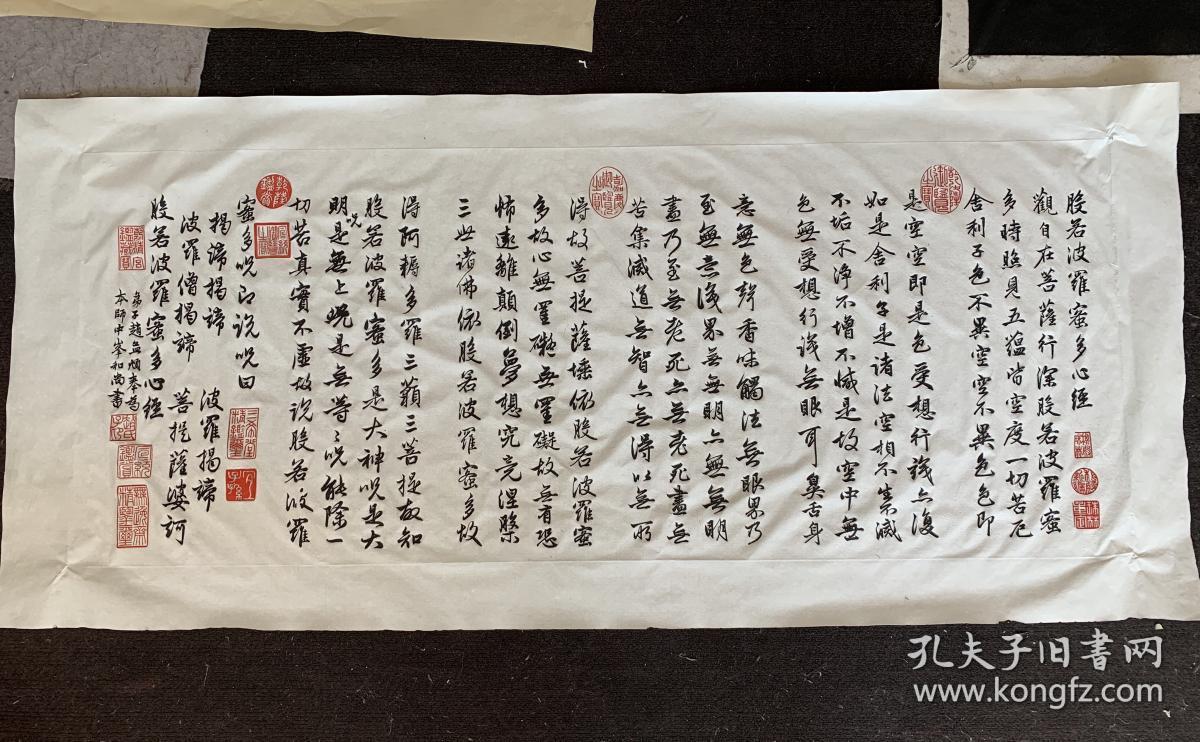 般若波羅蜜多心經
觀自在菩薩行深般若波羅蜜
多時照見五蘊皆空度一切苦厄
舍利子色不異空空不異色色即
是空空即是色受想行識亦復
如是舍利子是諸法空相不生滅
不垢不淨不增不減是故空中無
色無受想行識無眼耳鼻舌身
意無色聲香味觸法無眼界乃
至無意識界無無明亦無無明
盡乃至無老死亦無老死盡無
苦集滅道無智亦無得以無所
得故菩提薩埵依般若波羅蜜
多故心無罣礙無罣礙故無有恐
怖遠離顛倒夢想究竟涅槃
三世諸佛依般若波羅蜜多故
得阿耨多羅三藐三菩提故知
般若波羅蜜多是大神呪是大
明呪是無上呪是無等〻呪能除一
切苦真實不虛故說般若波羅
蜜多呪即說呪曰
揭諦揭諦 波羅揭諦
波羅僧揭諦 菩提薩婆訶
般若波羅蜜多心經
弟子趙孟頫奉為
本師中峯和尚書
孔夫子旧书网
www.kongfz.com